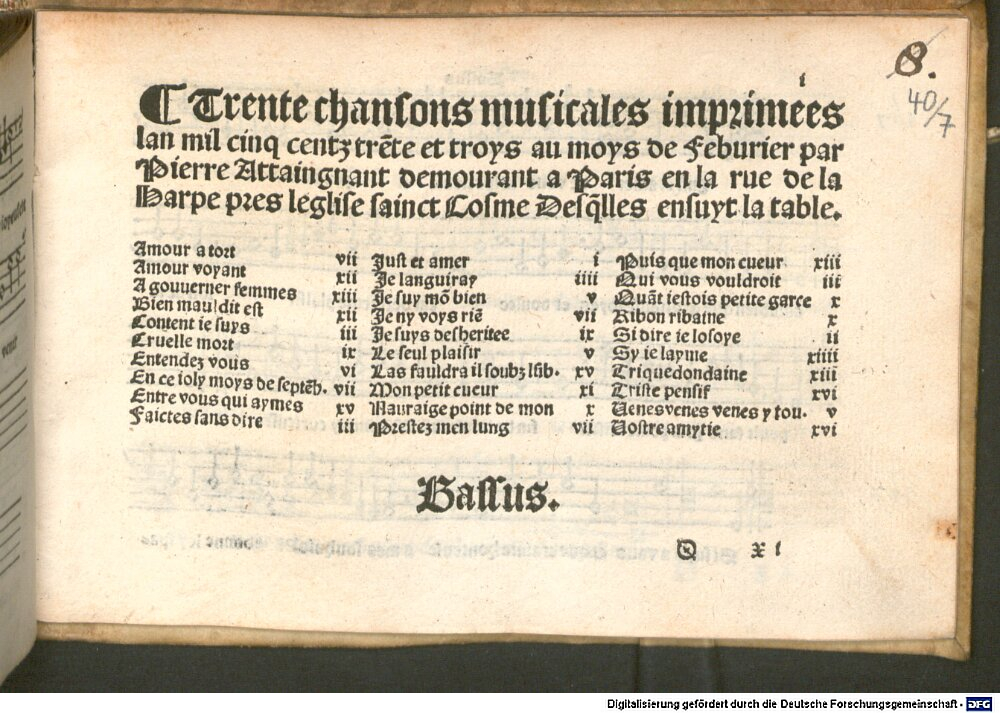 8.
40/7
i
¶ Trente chansons musicales imprimees
lan mil cinq centz trẽte et troys au moys de Feburier par
Pierre Attaingnant demourant a Paris en la rue de la
Harpe pres leglise sainct Cosme Desq̃lles ensuyt la table.
Amour a tort vii
Amour voyant xii
A gouuerner femmes xiii
Bien mauldit est xii
Content ie suys iii
Cruelle mort ix
Entendez vous vi
En ce ioly moys de septẽb. vii
Entre vous qui aymes xv
Faictes sans dire iii
Just et amer i
Je languiray iiii
Je suy mõ bien v
Je ny voys riẽ vii
Je suys desheritee ix
Le seul plaisir v
Las fauldra il soubz lũb. xv
Mon petit cueur xi
Nauraige point de mon x
Prestez men lung vii
Puis que mon cueur xiii
Qui vous vouldroit iii
Quãt iestois petite garce x
Ribon ribaine x
Si dire ie losoye ii
Sy ie layme xiiii
Triquedondaine xiii
Triste pensif xvi
Venes venes venes y tou. v
Vostre amytie xvi
Bassus.
Q xi
Digitalisierung gefördert durch die Deutsche Forschungsgemeinschaft - DFG